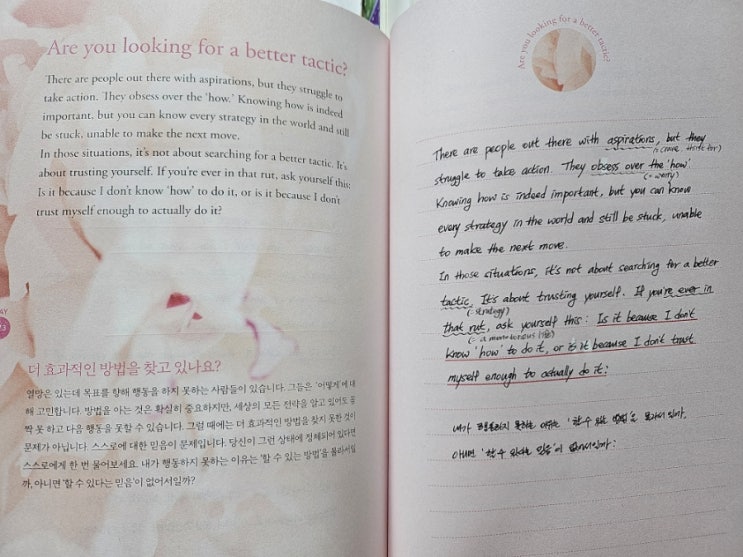 Are you looking for a better tactic?
There are people out there with aspirations, but they struggle to
take action. They obsess over the 'how.' Knowing how is indeed
important, but you can know every strategy in the world and still
be stuck, unable to make the next move.
In those situations, it's not about searching for a better tactic. It's
about trusting yourself. If you're ever in that rut, ask yourself this:
Is it because I don't know 'how' to do it, or is it because I don't
trust myself enough to actually do it?
더 효과적인 방법을 찾고 있나요?
열망은 있는데 목표를 향해 행동을 하지 못하는 사람들이 있습니다. 그들은 '어떻게'에 대
해 고민합니다. 방법을 아는 것은 확실히 중요하지만, 세상의 모든 전략을 알고 있어도 꼼
짝 못 하고 다음 행동을 못할 수 있습니다. 그럴 때에는 더 효과적인 방법을 찾지 못한 것이
문제가 아닙니다. 스스로에 대한 믿음이 문제입니다. 당신이 그런 상태에 정체되어 있다면
스스로에게 한 번 물어보세요. 내가 행동하지 못하는 이유는 '할 수 있는 방법'을 몰라서일
까, 아니면 '할 수 있다는 믿음'이 없어서일까?
Are you looking for a better tactic?
There are people out there with aspirations, but they
struggle to take action. They obsess over the 'how'
(= worry)
Knowing how is indeed important, but you can know
every strategy in the world and still be stuck, unable
to make the next move.
In those situations, it's not about searching for a better
tactic. It's about trusting yourself. If you're ever in
(= strategy)
that rut, ask yourself this: Is it because I don't
know 'how' to do it, or is it because I don't trust
myself enough to actually do it?
내가 못하는 이유는 '할 수 있는 방법'을 몰라서일까,
아니면 '할 수 있다는 믿음'이 없어서일까?